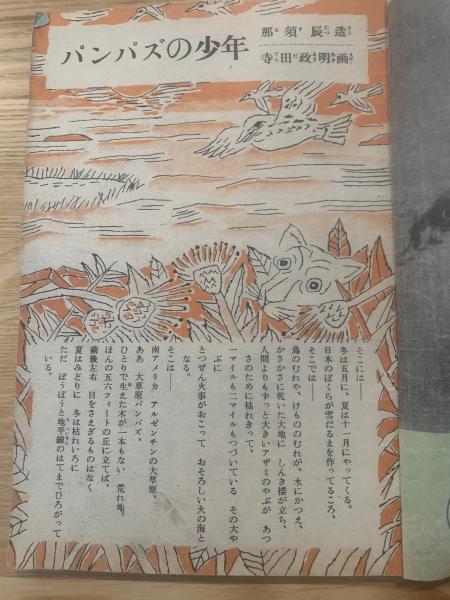 パンパズの少年
那須辰造
寺田政明画
そこには――
冬は五月に、夏は十一月にやってくる。
日本のぼくらが雪だるまを作ってるころ、
そこでは――
鳥のむれや、けもののむれが、水にかつえ、
かさかさに乾いた大地に しんき楼が立ち、
人間よりもずっと大きいアザミのやぶが あつ
さのために枯れきって、
一マイルも二マイルもつづいている その大や
ぶに
とつぜん火事がおこって おそろしい火の海と
なる。
そこは――
南アメリカ アルゼンチンの大草原、
ああ 大草原パンパズ、
ひとりで生えた木が一本もない 荒れ地。
ほんの五六フィートの丘に立てば、
前後左右 目をさえぎるものはなく
夏はみどりに 冬は枯れいろに
ただ ぼうぼうと地平線のはてまでひろがって
いる。